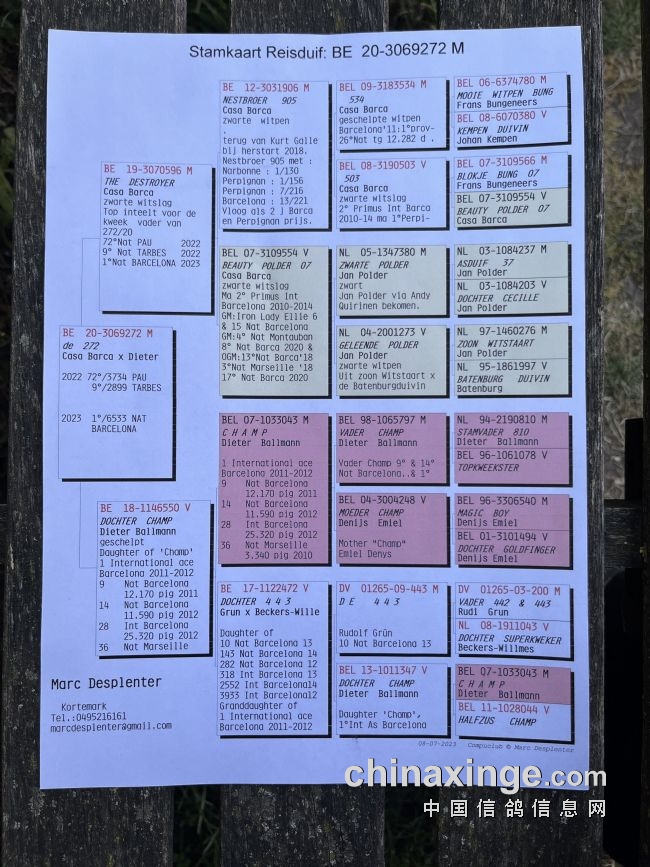 Stamkaart Reisduif: BE 20-3069272 M
BE 20-3069272 M
de 272
Casa Barca x Dieter
2022 72°/3734 PAU
9°/2899 TARBES
2023 1°/6533 NAT
BARCELONA
BE 19-3070596 M
THE DESTROYER
Casa Barca
zwarte witslag
Top inteelt voor de
kweek vader van
272/20
72°Nat PAU 2022
9° Nat TARBES 2022
1°Nat BARCELONA 2023
BE 18-1146550 V
DOCHTER CHAMP
Dieter Ballmann
geschelpt
Daughter of 'Champ'
1 International ace
Barcelona 2011-2012
9 Nat Barcelona
12.170 pig 2011
14 Nat Barcelona
11.590 pig 2012
28 Int Barcelona
25.320 pig 2012
36 Nat Marseille
BE 12-3031906 M
NESTBROER 905
Casa Barca
zwarte witpen
.
terug van Kurt Galle
bij herstart 2018.
Nestbroer 905 met :
Narbonne : 1/130
Perpignan : 1/156
Perpignan : 7/216
Barcelona : 13/221
Vloog als 2 j Barca
en Perpignan prijs.
BEL 07-3109554 V
BEAUTY POLDER 07
Casa Barca
zwarte witslag
Ma 2° Primus Int
Barcelona 2010-2014
GM:Iron Lady Ellie 6
& 15 Nat Barcelona
GM:4° Nat Montauban
8° Nat Barca 2020 &
OGM:13°Nat Barca'18
3°Nat Marseille '18
17° Nat Barca 2020
BEL 07-1033043 M
C H A M P
Dieter Ballmann
1 International ace
Barcelona 2011-2012
9 Nat Barcelona
12.170 pig 2011
14 Nat Barcelona
11.590 pig 2012
28 Int Barcelona
25.320 pig 2012
36 Nat Marseille
3.340 pig 2010
BE 17-1122472 V
DOCHTER 4 4 3
Grun x Beckers-Wille
Daughter of
10 Nat Barcelona 13
143 Nat Barcelona 14
282 Nat Barcelona 12
318 Int Barcelona 13
2552 Int Barcelona14
3933 Int Barcelona12
Granddaughter of
1 International ace
Barcelona 2011-2012
BEL 09-3183534 M
534
Casa Barca
geschelpte witpen
Barcelona'11:1°prov-
26°Nat tg 12.282 d .
BEL 08-3190503 V
503
Casa Barca
zwarte witslag
2° Primus Int Barca
2010-14 ma 1°Perpi-
NL 05-1347380 M
ZWARTE POLDER
Jan Polder
zwart
Jan Polder via Andy
Quirinen bekomen.
NL 04-2001273 V
GELEENDE POLDER
Jan Polder
zwarte witpen
Uit zoon Witstaart x
de Batenburgduivin
BEL 98-1065797 M
VADER CHAMP
Dieter Ballmann
Vader Champ 9° & 14°
Nat Barcelona..& 1°
BEL 04-3004248 V
MOEDER CHAMP
Denijs Emiel
Mother "Champ"
Emiel Denys
DV 01265-09-443 M
D E 4 4 3
Rudolf Grün
10 Nat Barcelona 13
BEL 13-1011347 V
DOCHTER CHAMP
Dieter Ballmann
Daughter 'Champ',
1°Int As Barcelona
BEL 06-6374780 M
MOOIE WITPEN BUNG
Frans Bungeneers
BEL 08-6070380 V
KEMPEN DUIVIN
Johan Kempen
BEL 07-3109566 M
BLOKJE BUNG 07
Frans Bungeneers
BEL 07-3109554 V
BEAUTY POLDER 07
Casa Barca
NL 03-1084237 M
ASDUIF 37
Jan Polder
NL 03-1084203 V
DOCHTER CECILLE
Jan Polder
NL 97-1460276 M
ZOON WITSTAART
Jan Polder
NL 95-1861997 V
BATENBURG DUIVIN
Batenburg
NL 94-2190810 M
STAMVADER 810
Dieter Ballmann
BEL 96-1061078 V
TOPKWEEKSTER
BEL 96-3306540 M
MAGIC BOY
Denijs Emiel
BEL 01-3101494 V
DOCHTER GOLDFINGER
Denijs Emiel
DV 01265-03-200 M
VADER 442 & 443
Rudi Grun
NL 08-1911043 V
DOCHTER SUPERKWEKER
Beckers-Willmes
BEL 07-1033043 M
C H A M P
Dieter Ballmann
BEL 11-1028044 V
HALFZUS CHAMP
Marc Desplenter
Kortemark
Tel.:0495216161
marcdesplenter@gmail.com
08-07-2023 Compuclub © Marc Desplenter
chinaxinge.com
中国信鸽信息网